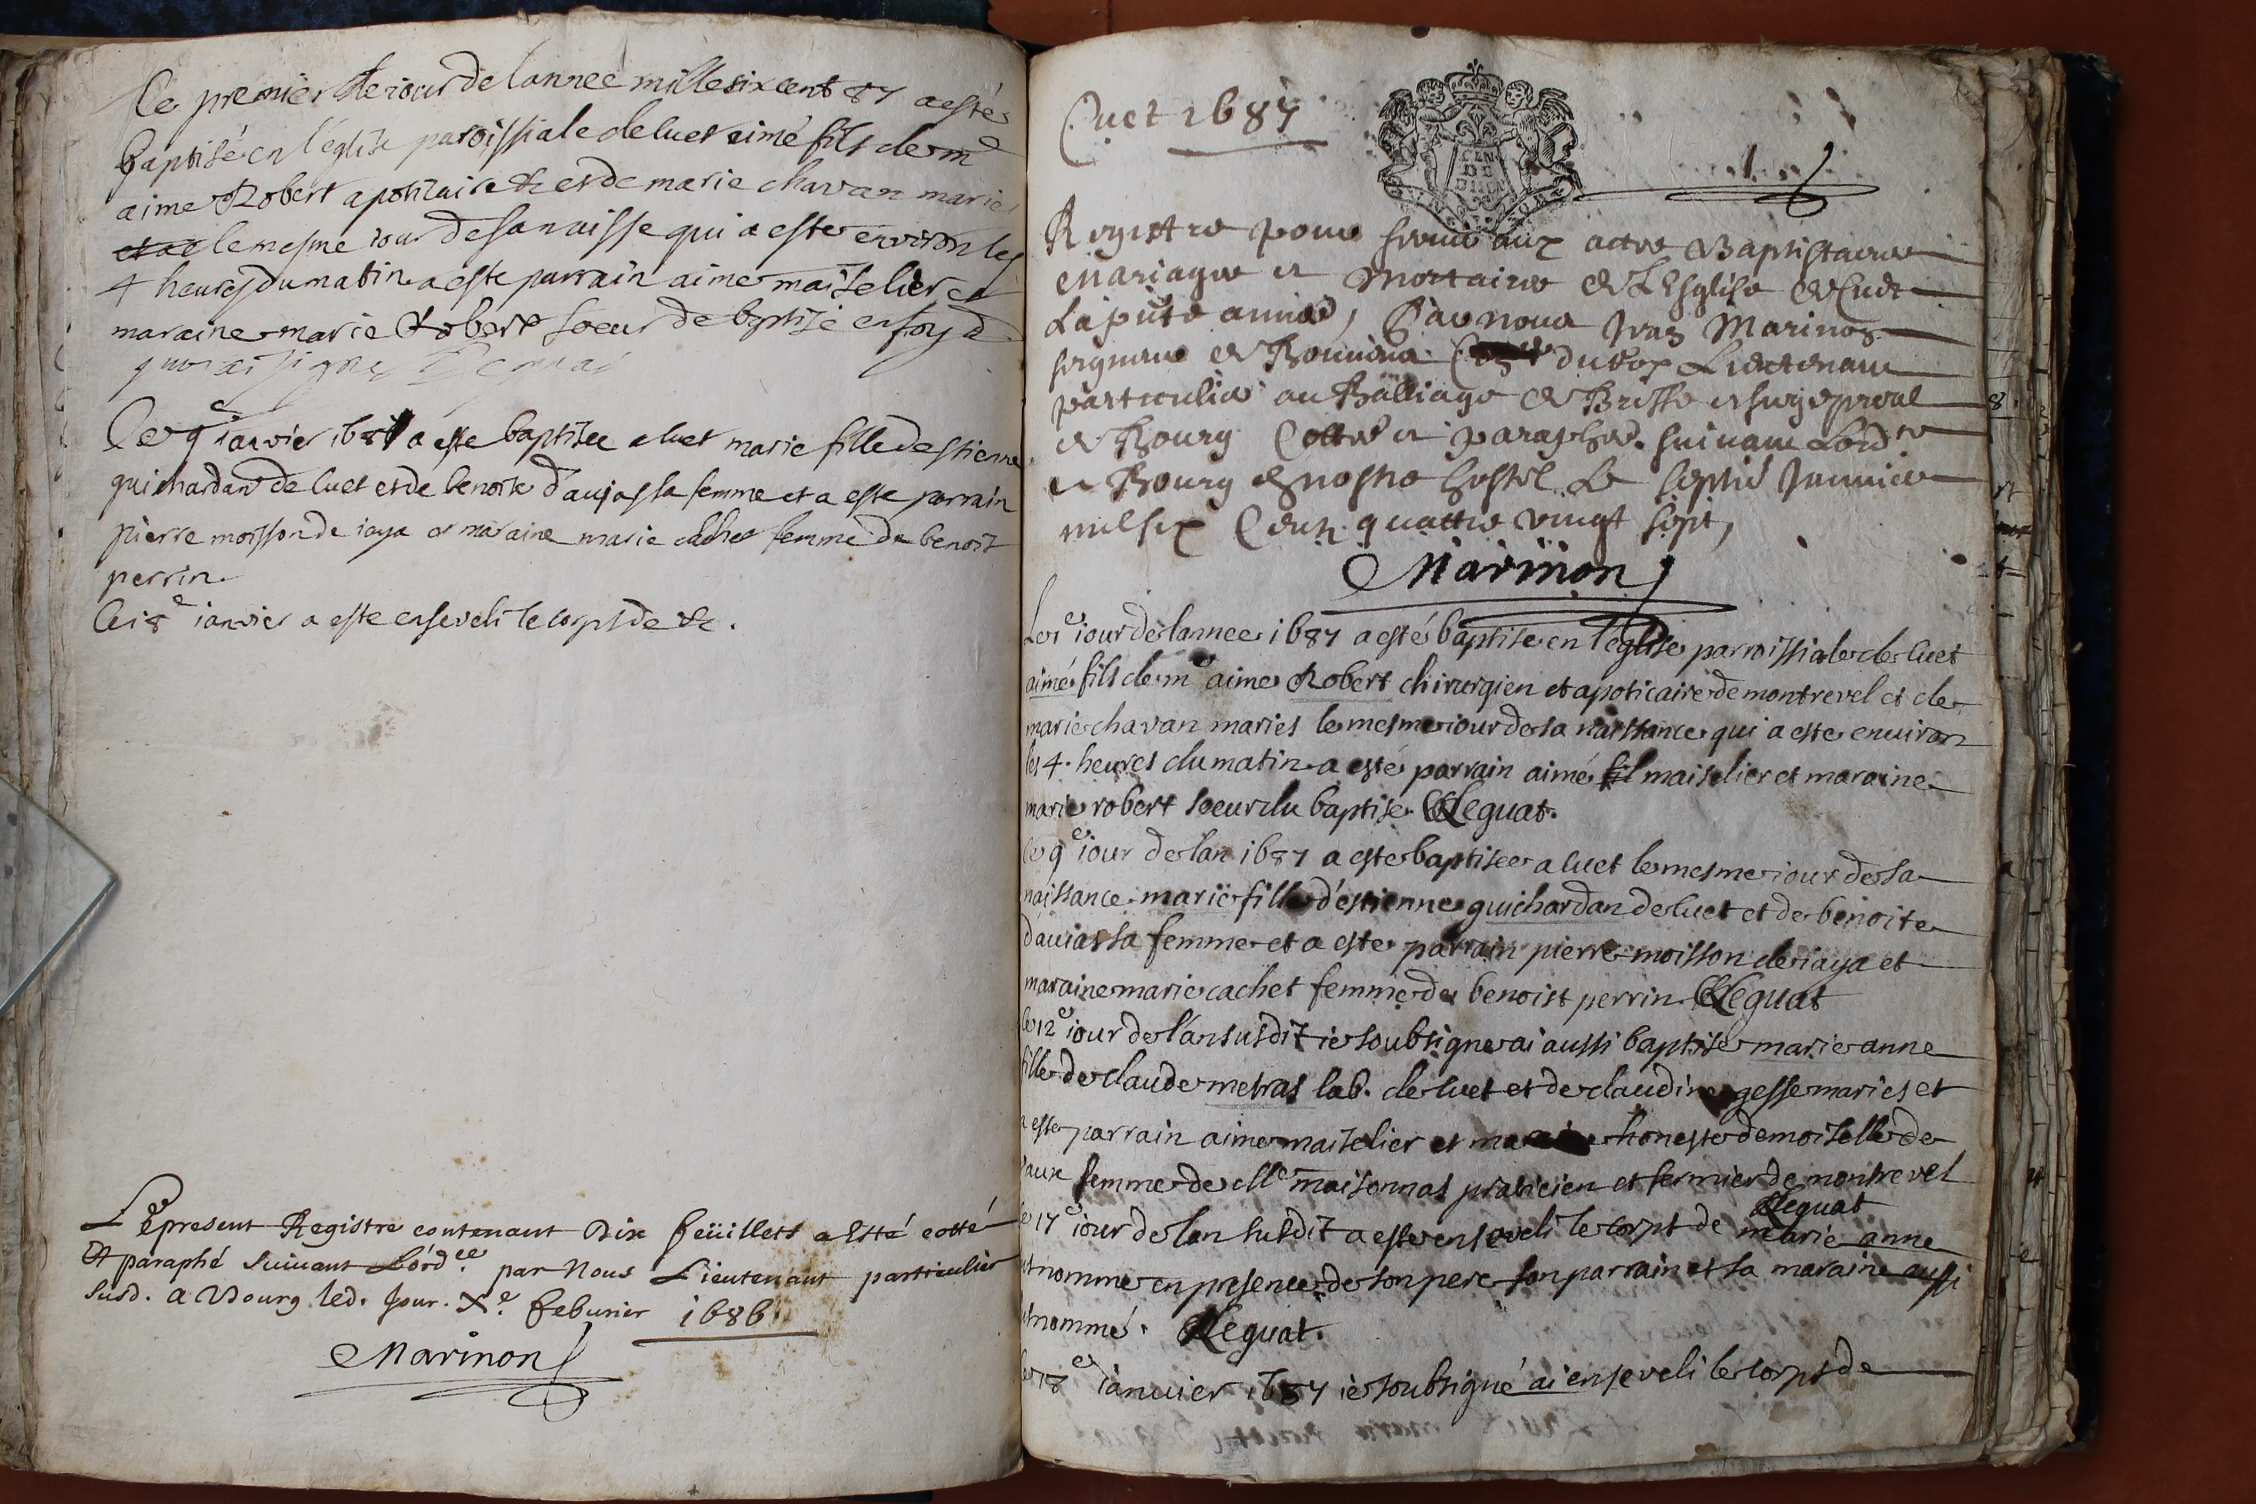 Ce premier de iour de lannee mille six cent 87 a esté
baptisé en l'eglise paroissiale de luet aimé fils de me
aime Robert apoticaire &c et de marie chavan maries
et ae le mesme iour de sa naisse qui a este environ les
4 heures du matin a este parrain aime maiselier et
maraine marie Robert soeur de baptisé en foy d
quoi ai signé
Ce 9e ianvier 1687 a este baptisee a luet marie fille destienne
guichardan de luet et de benoite d'aujas sa femme et a este parrain
pierre moisson de iaya et maraine marie cachet femme de benoist
perrin.
Ce 18e ianvier a este enseveli le corps de &c.
Le present Registre contenant Dix feüillets a Esté cotté
Et paraphé Suivant L'órd.ce par Nous Lieutenant particulier
Susd. A Bourg led. Jour. Xe. feburier 1686
Marinon
Cuet 1687
GEN
DE
DIION
1
Registre pour servir aux actes Baptistaires
Mariages et Mortaires de L'Esglise de Cuet
La pnte année, Par nous Yves Marinon
seigneur de Conser du Roy Lieutenant
particulier au Balliage de Bresse et siege presal
de Bourg Cotté et paraphé suivant Lordce
a Bourg en nostre hostel Le septie Janvier
mil six Cents quattre vingt sept,
Marinon
Le 1e iour de lannee 1687 a esté baptise en l'eglise parroissiale de luet
aimé fils de me aime Robert chirurgien et apoticaire de montrevel et de
marie chavan maries le mesme iour de sa naissance qui a este environ
les 4. heures du matin a esté parrain aimé fil maiselier et maraine
marie robert soeur du baptise. Leguat.
Ce 9e iour de lan 1687 a este baptisee a luet le mesme iour de sa
naissance marie fille d'estienne guichardan de luet et de benoite
d'auias sa femme et a este parrain pierre moisson de iaya et
maraine marie cachet femme de benoist perrin. Leguat
Ce 12e iour de l'an susdit ie soubsigne ai aussi baptise marie anne
fille de claude metras lab. de luet et de claudine gesse maries et
a este parrain aime maiselier et maraine honeste demoiselle de
vaux femme de Mre maisonnas praticien et fermier de montrevel
Leguat
Ce 17e iour de lan susdit a este enseveli le corps de marie anne
ut nomme en presence de son pere son parrain et sa maraine aussi
ut nommé. Leguat.
Ce 18e ianvier 1687 ie soubsigné ai enseveli le corps de